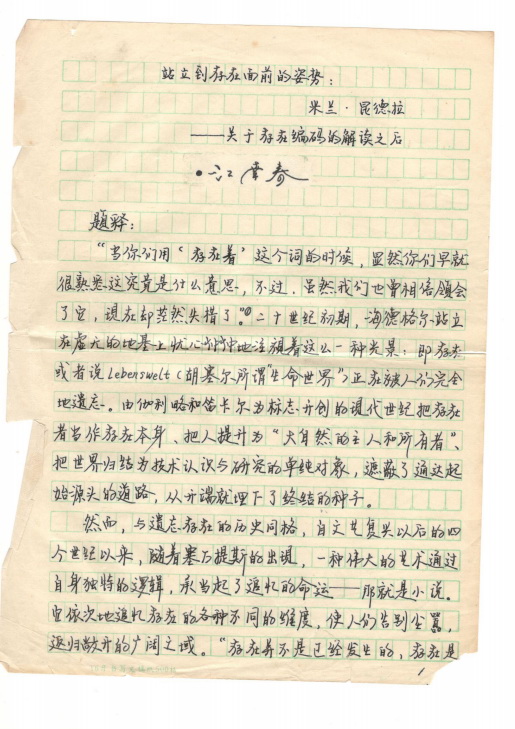 站立到存在面前的姿势：
米兰·昆德拉
——关于存在编码的解读之后
·江
题释：
“当你们用‘存在着’这个词的时候，显然你们早就
很熟悉这究竟是什么意思，不过，虽然我们也曾相信领会
了它，现在却茫然失措了”①二十世纪初期，海德格尔站立
在虚无的地基上忧心忡忡地注视着这么一种光景：即存在
或者说Lebenswelt（胡塞尔所谓“生命世界”）正在被人们完全
地遗忘。由伽利略和笛卡尔为标志开创的现代世纪把存在
者当作存在本身、把人提升为“大自然的主人和所有者”、
把世界归结为技术认识与研究的单纯对象，遮蔽了通达起
始源头的道路，从开端就埋下了终结的种子。
然而，与遗忘存在的历史同格，自文艺复兴以后的四
个世纪以来，随着塞万提斯的出现，一种伟大的艺术通过
自身独特的逻辑，承当起了追忆的命运——那就是小说。
它依次地追忆存在的各种不同的维度，使人们告别尘嚣，
返归敞开的广阔之域。“存在并不是已经发生的，存在是
1